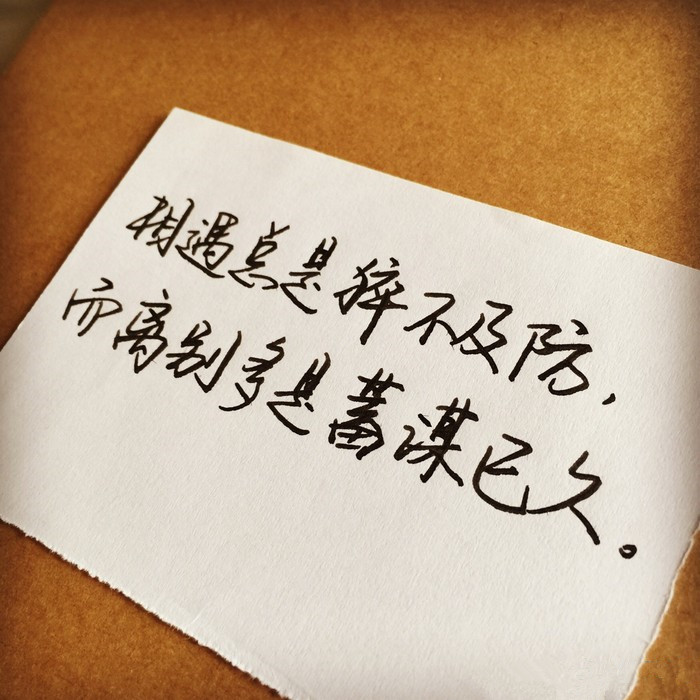 相遇总是猝不及防,
而离别多是蓄谋已久。